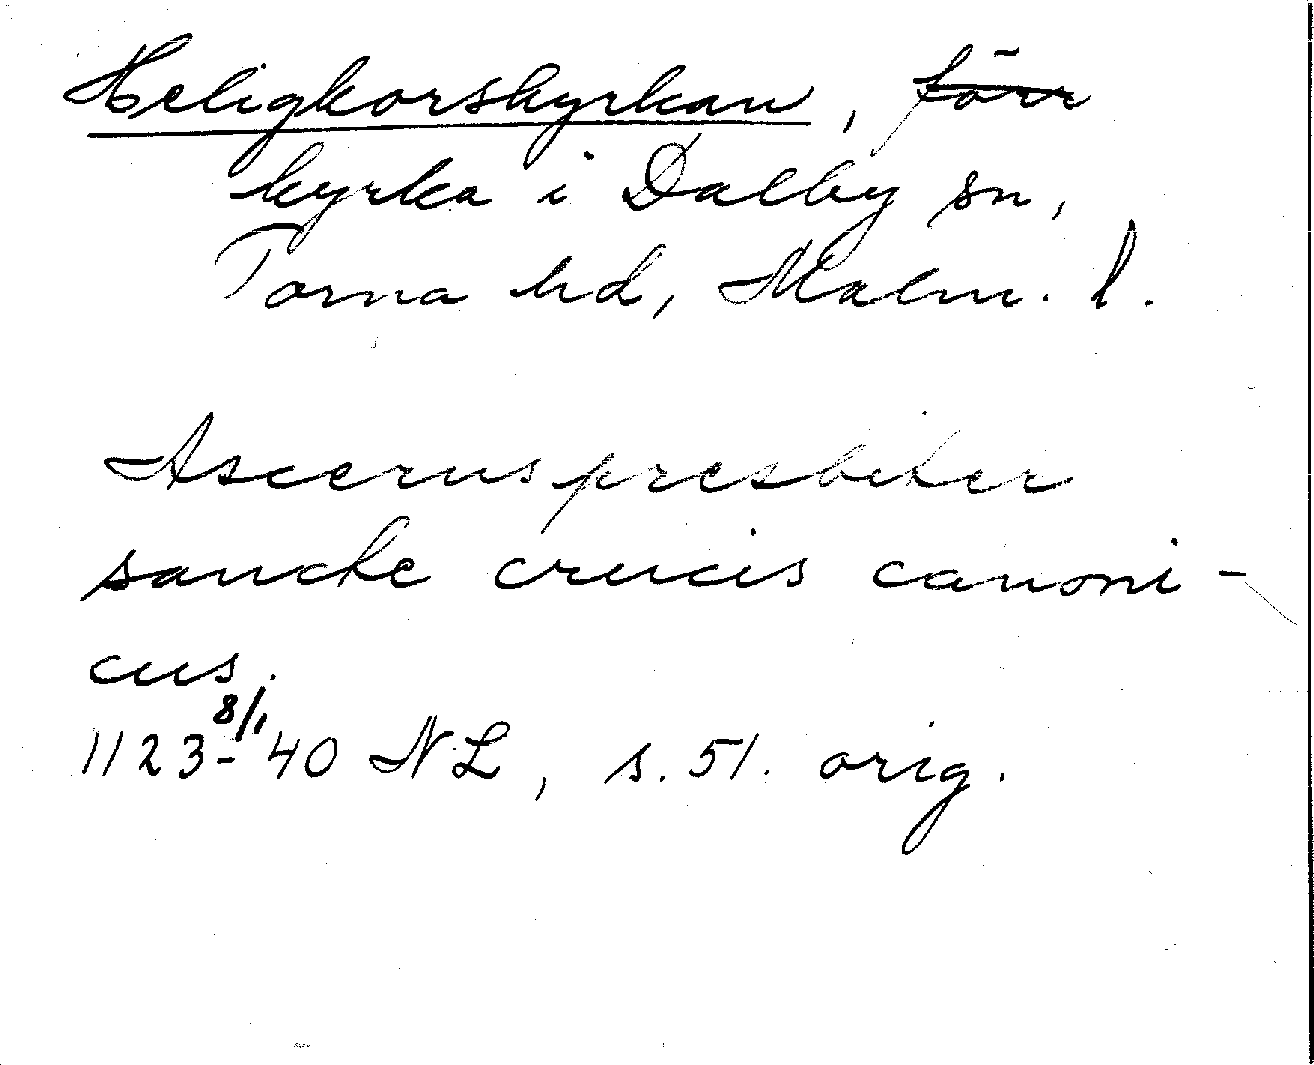 Heligkorskyrkan, förr
kyrka i Dalby sn,
Torna hd, Malm. l.
Ascerus presbiter
sancte crucis canoni-
cus.
1123-8/1 40 NL, s. 51. orig.